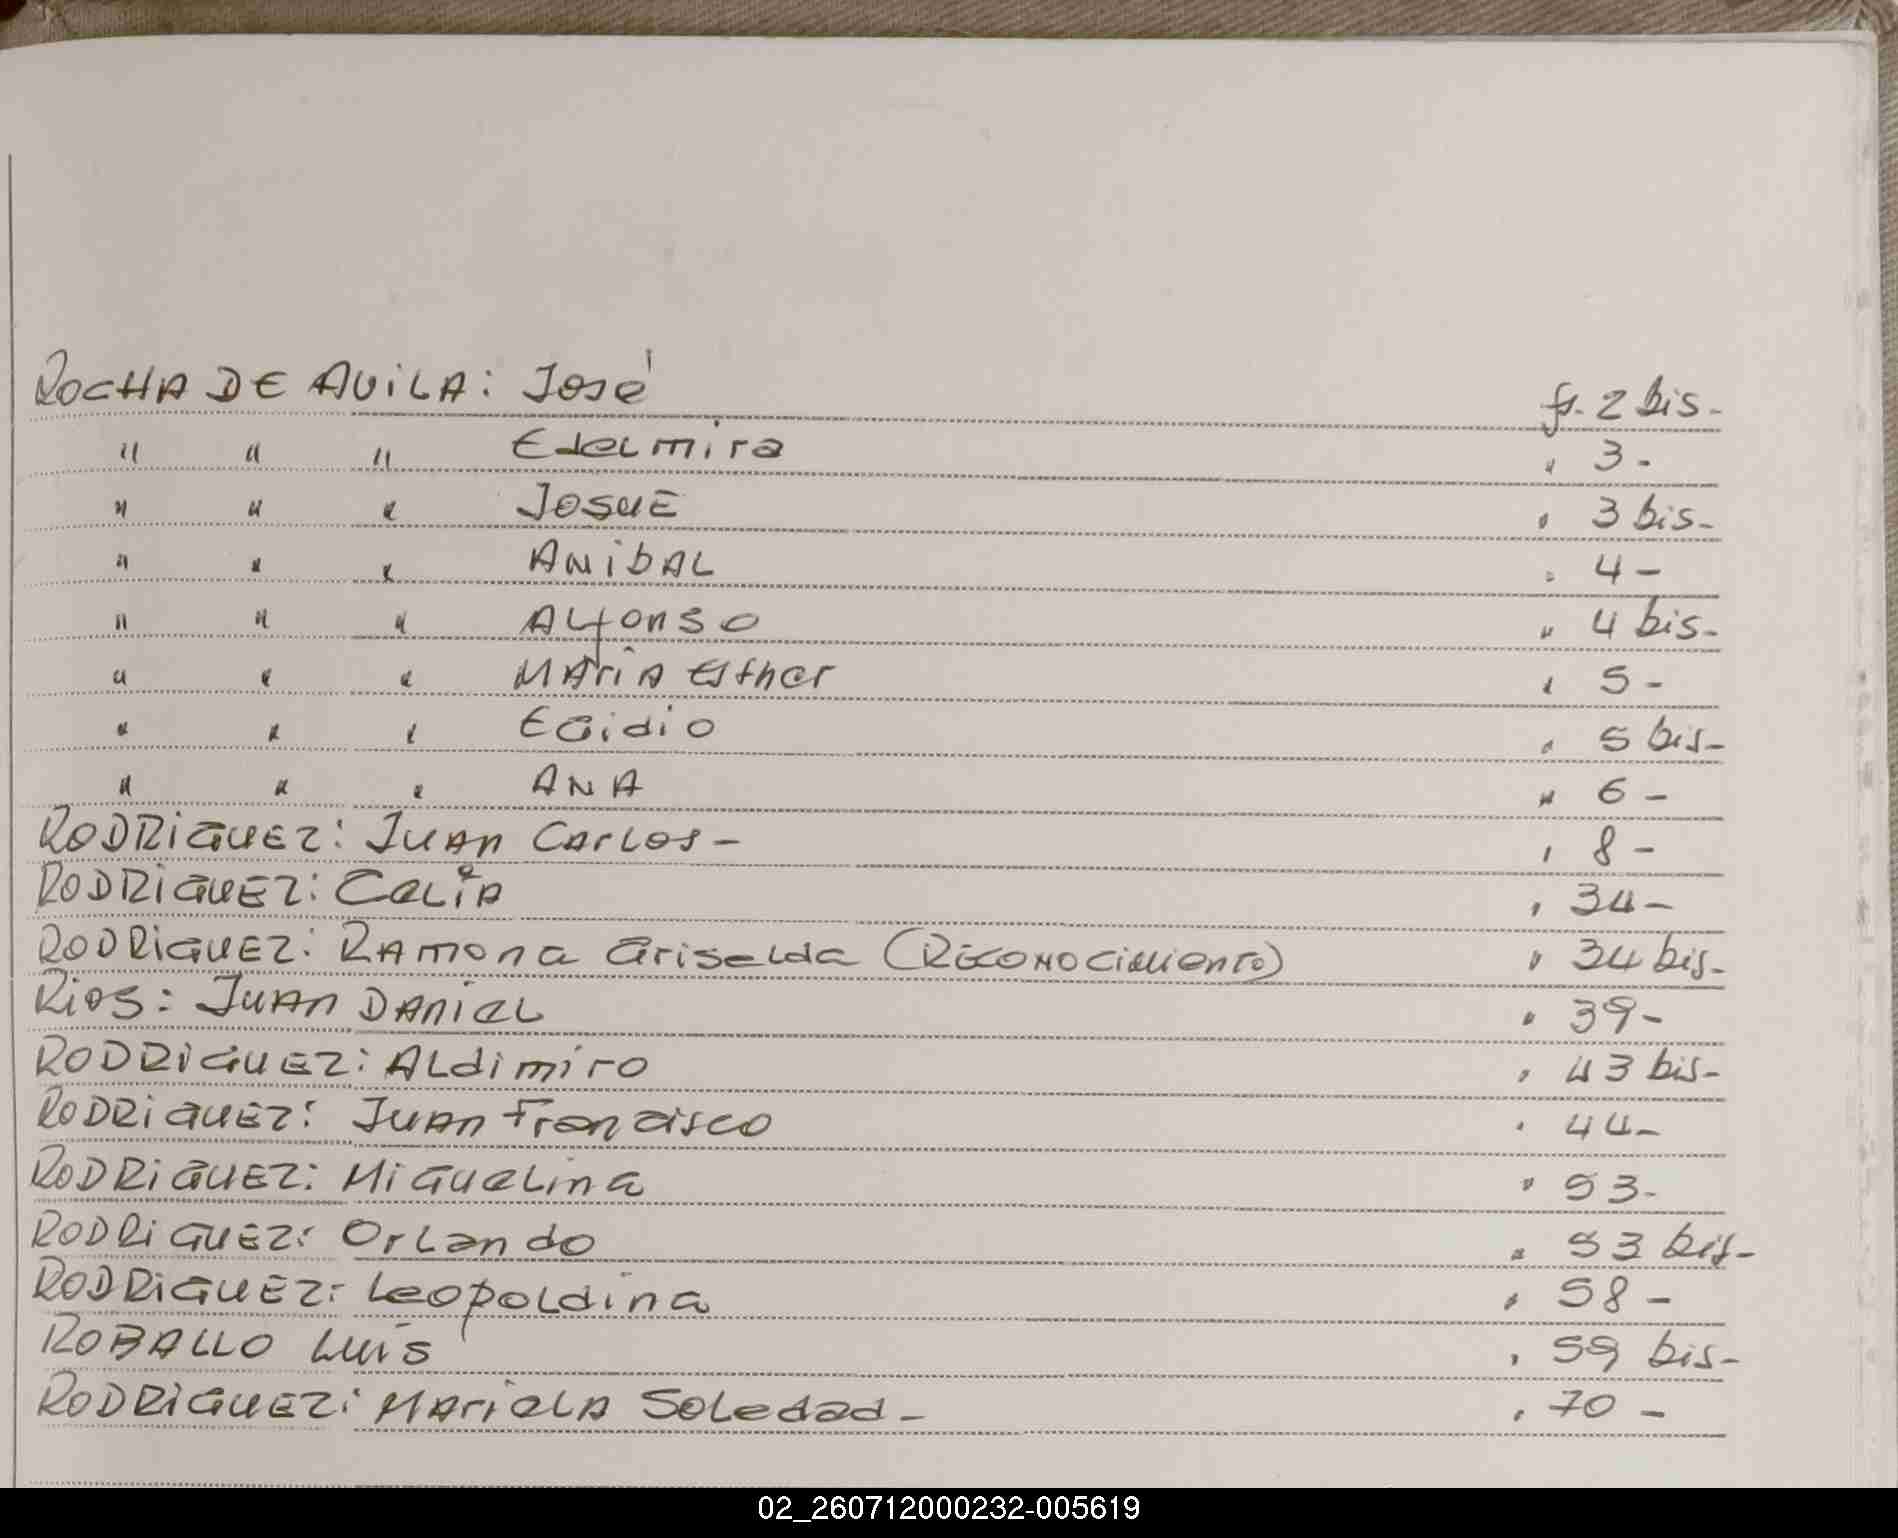 ROCHA DE AVILA: José fs. 2 bis-
" " " Edelmira " 3-
" " " JOSUE " 3 bis-
" " " ANIBAL " 4-
" " " ALfonso " 4 bis-
" " " MARIA Esther " 5-
" " " EGidio " 5 bis-
" " " ANA " 6-
RODRIGUEZ: JUAN CARLOS- " 8-
RODRIGUEZ: CELIA " 34-
RODRIGUEZ: RAMONA Griselda (RECONOCIMIENTO) " 34 bis-
RIOS: JUAN DANIEL " 39-
RODRIGUEZ: ALdimiro " 43 bis-
RODRIGUEZ: JUAN Francisco " 44-
RODRIGUEZ: Miguelina " 53-
RODRIGUEZ: Orlando " 53 bis-
RODRIGUEZ: Leopoldina " 58-
ROBALLO LUIS " 59 bis-
RODRIGUEZ: MARIELA Soledad- " 70-
02_260712000232-005619